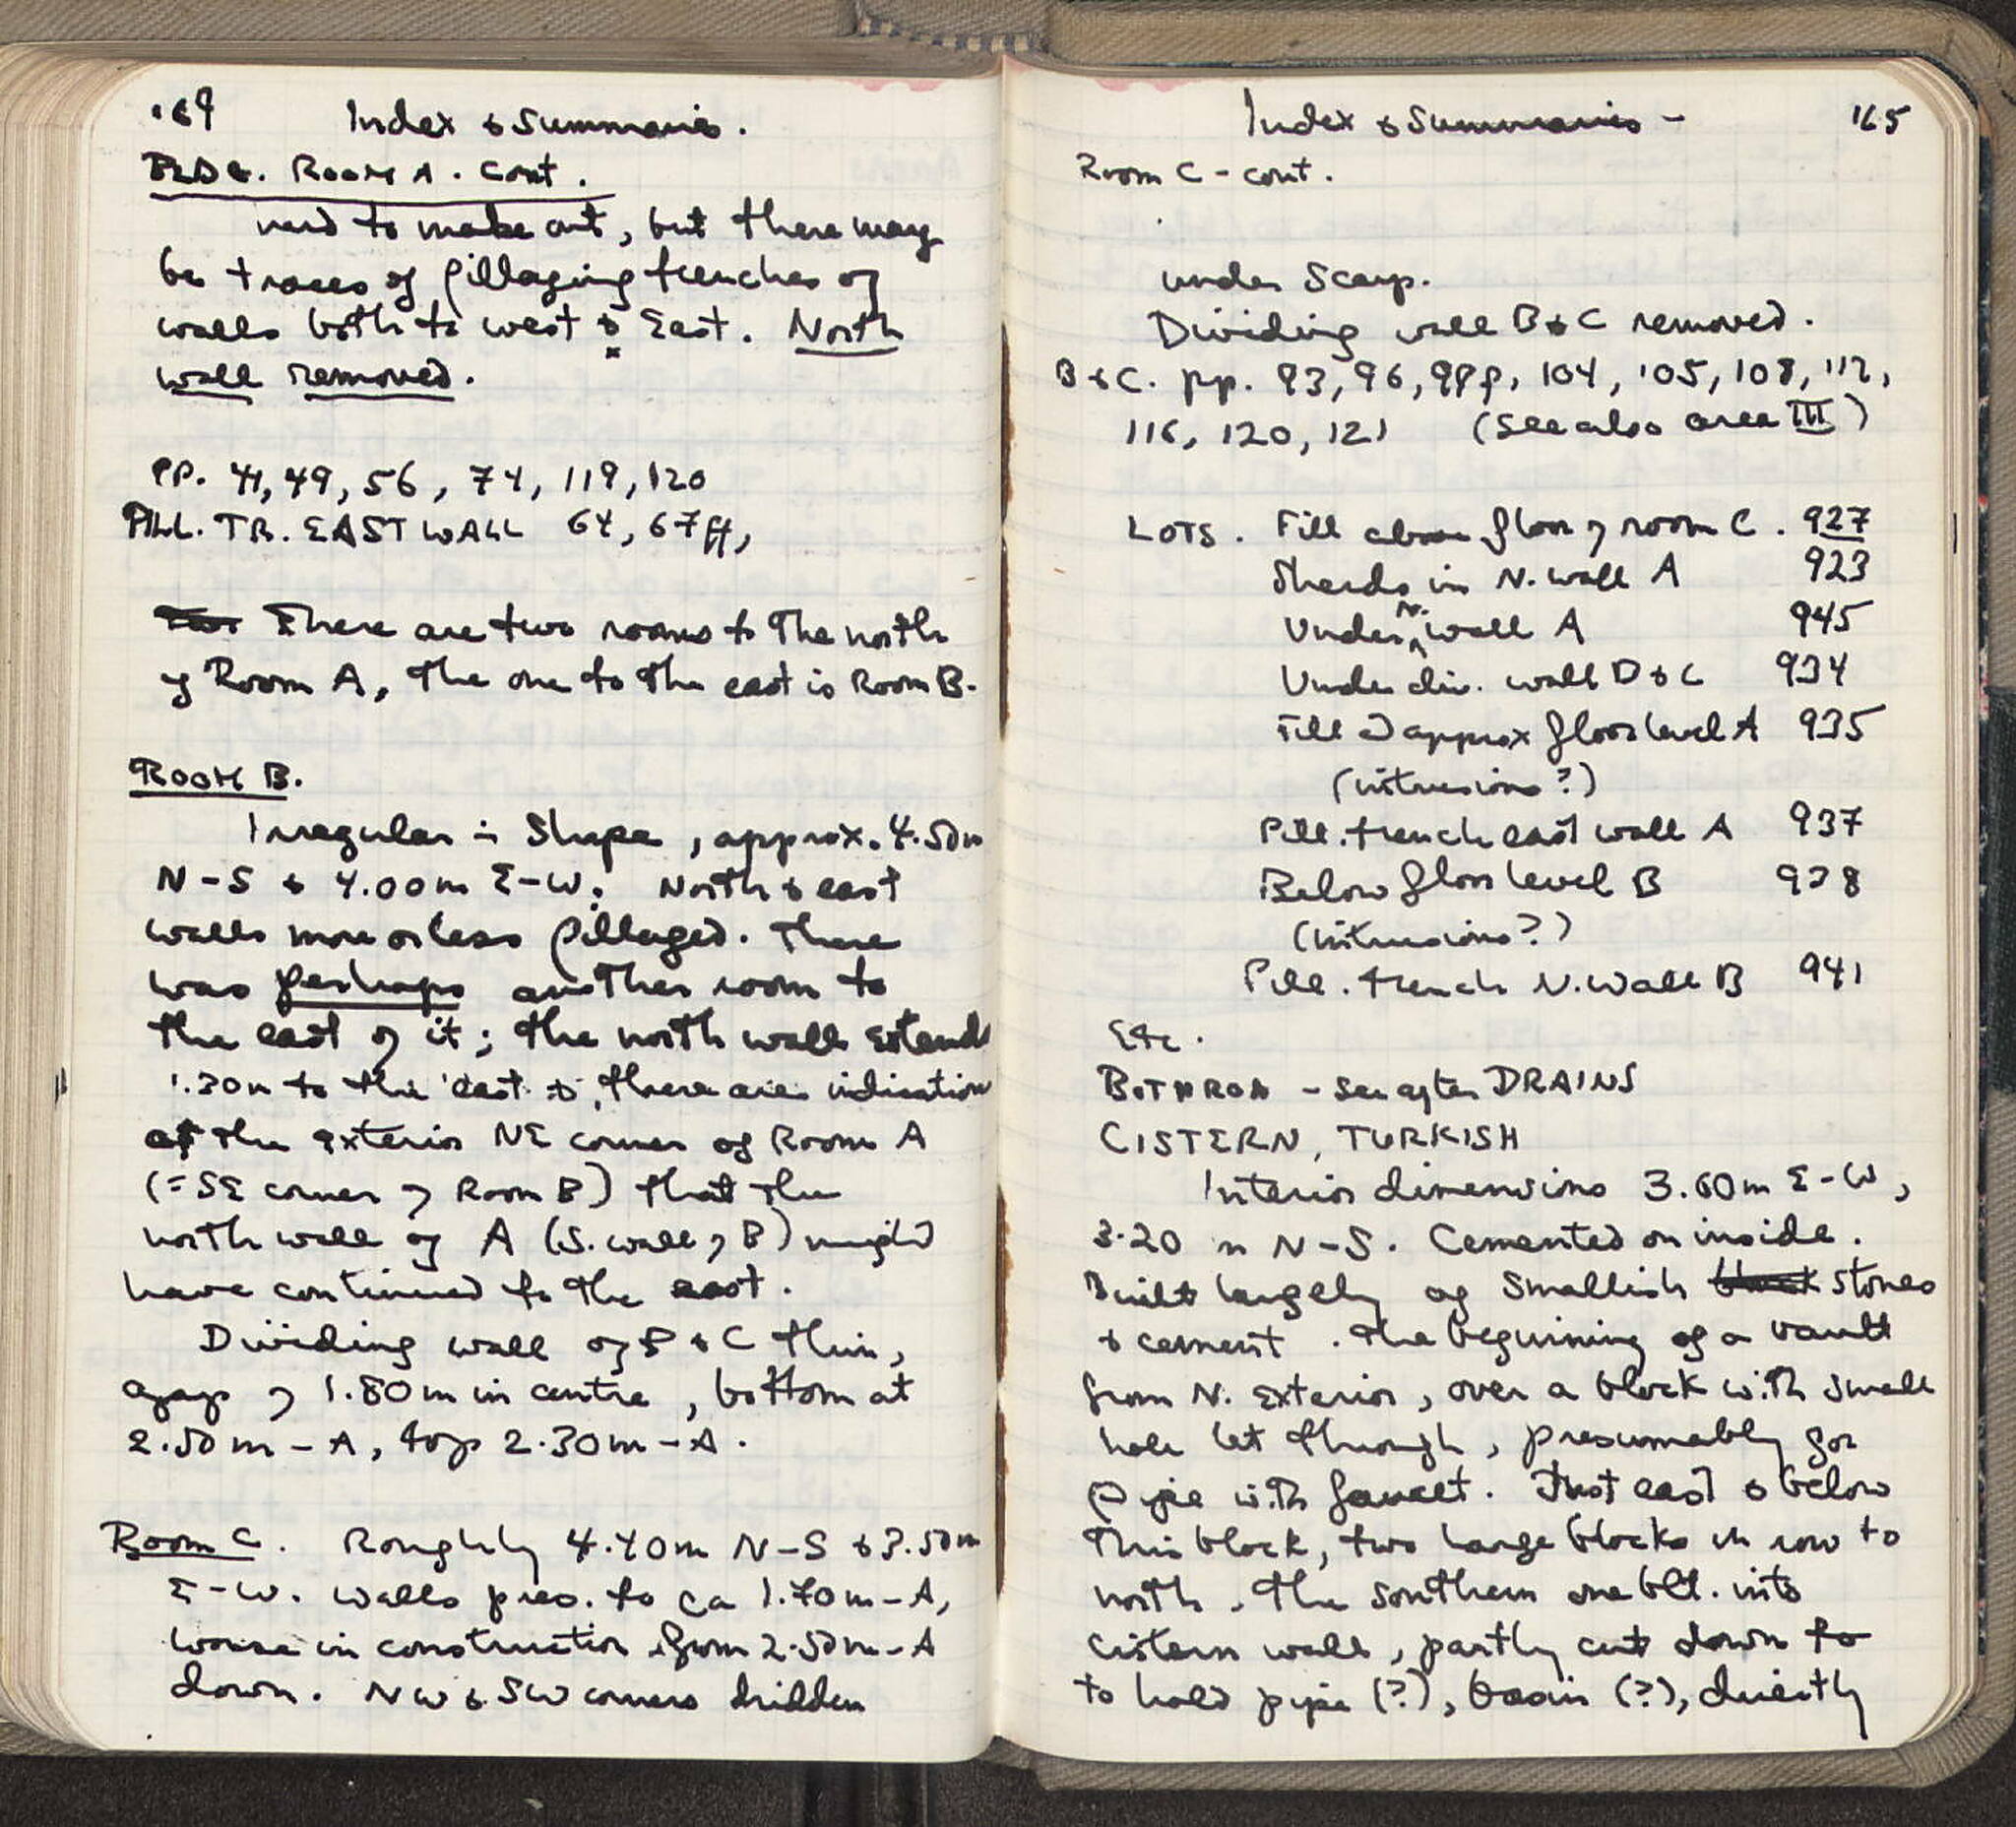 164
Index & Summaries.
BLDG. Room A. Cont.
hard to make out, but there may
be traces of pillaging trenches of
walls both to west & East. North
wall removed.
PP. 41, 49, 56, 74, 119, 120
PILL. TR. EAST WALL 64, 67ff,
There are two rooms to the north
of Room A, the one to the east is Room B.
ROOM B.
Irregular in Shape, approx. 4.50m
N-S & 4.00m E-W. North & east
walls more or less pillaged. There
was perhaps another room to
the east of it; the north wall extends
1.30m to the east & there are indications
at the exterior NE corner of Room A
(=SE corner of Room B) that the
north wall of A (S. wall of B) might
have continued to the east.
Dividing wall of B & C thin,
a gap of 1.80m in centre, bottom at
2.50m-A, top 2.30m-A.
Room C. Roughly 4.40m N-S & 3.50m
E-W. Walls pres. to ca 1.70m-A,
worse in construction from 2.50m-A
down. NW & SW corners hidden
Index & Summaries - 165
Room C - cont.
under Scarp.
Dividing wall B & C removed.
B & C. pp. 93, 96, 99f, 104, 105, 108, 112,
116, 120, 121 (See also area III)
LOTS. Fill above floor of room C. 927
Sherds in N. wall A 923
Under N. wall A 945
Under div. wall B & C 934
Fill at approx floor level A 935
(intrusions?)
Pill. trench east wall A 937
Below floor level B 938
(intrusions?)
Pill. trench N. Wall B 941
Etc.
BOTHROS - See after DRAINS
CISTERN, TURKISH
Interior dimensions 3.60m E-W,
3.20 m N-S. Cemented on inside.
Built largely of Smallish block stones
& cement. The beginning of a vault
from N. Exterior, over a block with small
hole let through, presumably for
pipe with faucet. Just east & below
this block, two large blocks in row to
north. The southern one blt. into
cistern wall, partly cut down to
to hold pipe (?), basin (?), directly